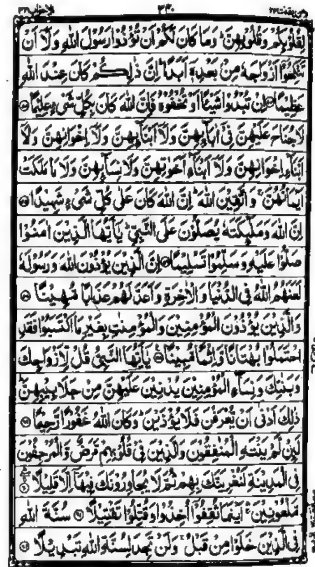 ومن يقنت ٢٢ ٣٤٠ الاحزاب ٣٣
لِقُلُوْبِكُمْ وَقُلُوْبِهِنَّ ؕ وَمَا كَانَ لَكُمْ اَنْ تُؤْذُوْا رَسُوْلَ اللّٰهِ وَلَاۤ اَنْ
تَنْكِحُوْۤا اَزْوَاجَهٗ مِنْۢ بَعْدِهٖۤ اَبَدًا ؕ اِنَّ ذٰلِكُمْ كَانَ عِنْدَ اللّٰهِ
عَظِيْمًا ۝ اِنْ تُبْدُوْا شَيْـًٔا اَوْ تُخْفُوْهُ فَاِنَّ اللّٰهَ كَانَ بِكُلِّ شَيْءٍ عَلِيْمًا ۝
لَا جُنَاحَ عَلَيْهِنَّ فِيْۤ اٰبَآئِهِنَّ وَلَاۤ اَبْنَآئِهِنَّ وَلَاۤ اِخْوَانِهِنَّ وَلَاۤ
اَبْنَآءِ اِخْوَانِهِنَّ وَلَاۤ اَبْنَآءِ اَخَوٰتِهِنَّ وَلَا نِسَآئِهِنَّ وَلَا مَا مَلَكَتْ
اَيْمَانُهُنَّ ۚ وَاتَّقِيْنَ اللّٰهَ ؕ اِنَّ اللّٰهَ كَانَ عَلٰى كُلِّ شَيْءٍ شَهِيْدًا ۝
اِنَّ اللّٰهَ وَمَلٰٓئِكَتَهٗ يُصَلُّوْنَ عَلَى النَّبِيِّ ؕ يٰۤاَيُّهَا الَّذِيْنَ اٰمَنُوْا
صَلُّوْا عَلَيْهِ وَسَلِّمُوْا تَسْلِيْمًا ۝ اِنَّ الَّذِيْنَ يُؤْذُوْنَ اللّٰهَ وَرَسُوْلَهٗ
لَعَنَهُمُ اللّٰهُ فِي الدُّنْيَا وَالْاٰخِرَةِ وَاَعَدَّ لَهُمْ عَذَابًا مُّهِيْنًا ۝
وَالَّذِيْنَ يُؤْذُوْنَ الْمُؤْمِنِيْنَ وَالْمُؤْمِنٰتِ بِغَيْرِ مَا اكْتَسَبُوْا فَقَدِ
احْتَمَلُوْا بُهْتَانًا وَّاِثْمًا مُّبِيْنًا ۝ يٰۤاَيُّهَا النَّبِيُّ قُلْ لِّاَزْوَاجِكَ
وَبَنٰتِكَ وَنِسَآءِ الْمُؤْمِنِيْنَ يُدْنِيْنَ عَلَيْهِنَّ مِنْ جَلَابِيْبِهِنَّ ؕ
ذٰلِكَ اَدْنٰۤى اَنْ يُّعْرَفْنَ فَلَا يُؤْذَيْنَ ؕ وَكَانَ اللّٰهُ غَفُوْرًا رَّحِيْمًا ۝
لَئِنْ لَّمْ يَنْتَهِ الْمُنٰفِقُوْنَ وَالَّذِيْنَ فِيْ قُلُوْبِهِمْ مَّرَضٌ وَّالْمُرْجِفُوْنَ
فِي الْمَدِيْنَةِ لَنُغْرِيَنَّكَ بِهِمْ ثُمَّ لَا يُجَاوِرُوْنَكَ فِيْهَاۤ اِلَّا قَلِيْلًا ۝
مَّلْعُوْنِيْنَ ۛۚ اَيْنَمَا ثُقِفُوْۤا اُخِذُوْا وَقُتِّلُوْا تَقْتِيْلًا ۝ سُنَّةَ اللّٰهِ
فِي الَّذِيْنَ خَلَوْا مِنْ قَبْلُ ۚ وَلَنْ تَجِدَ لِسُنَّةِ اللّٰهِ تَبْدِيْلًا ۝